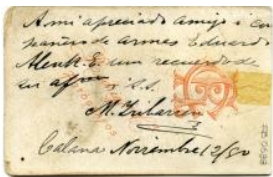 A mi apreciado amigo i com
pañero de armas Eduardo
Alenk. E. un recuerdo de
su afmo i S.S.
M. Iribarren
Calama Noviembre 12/90